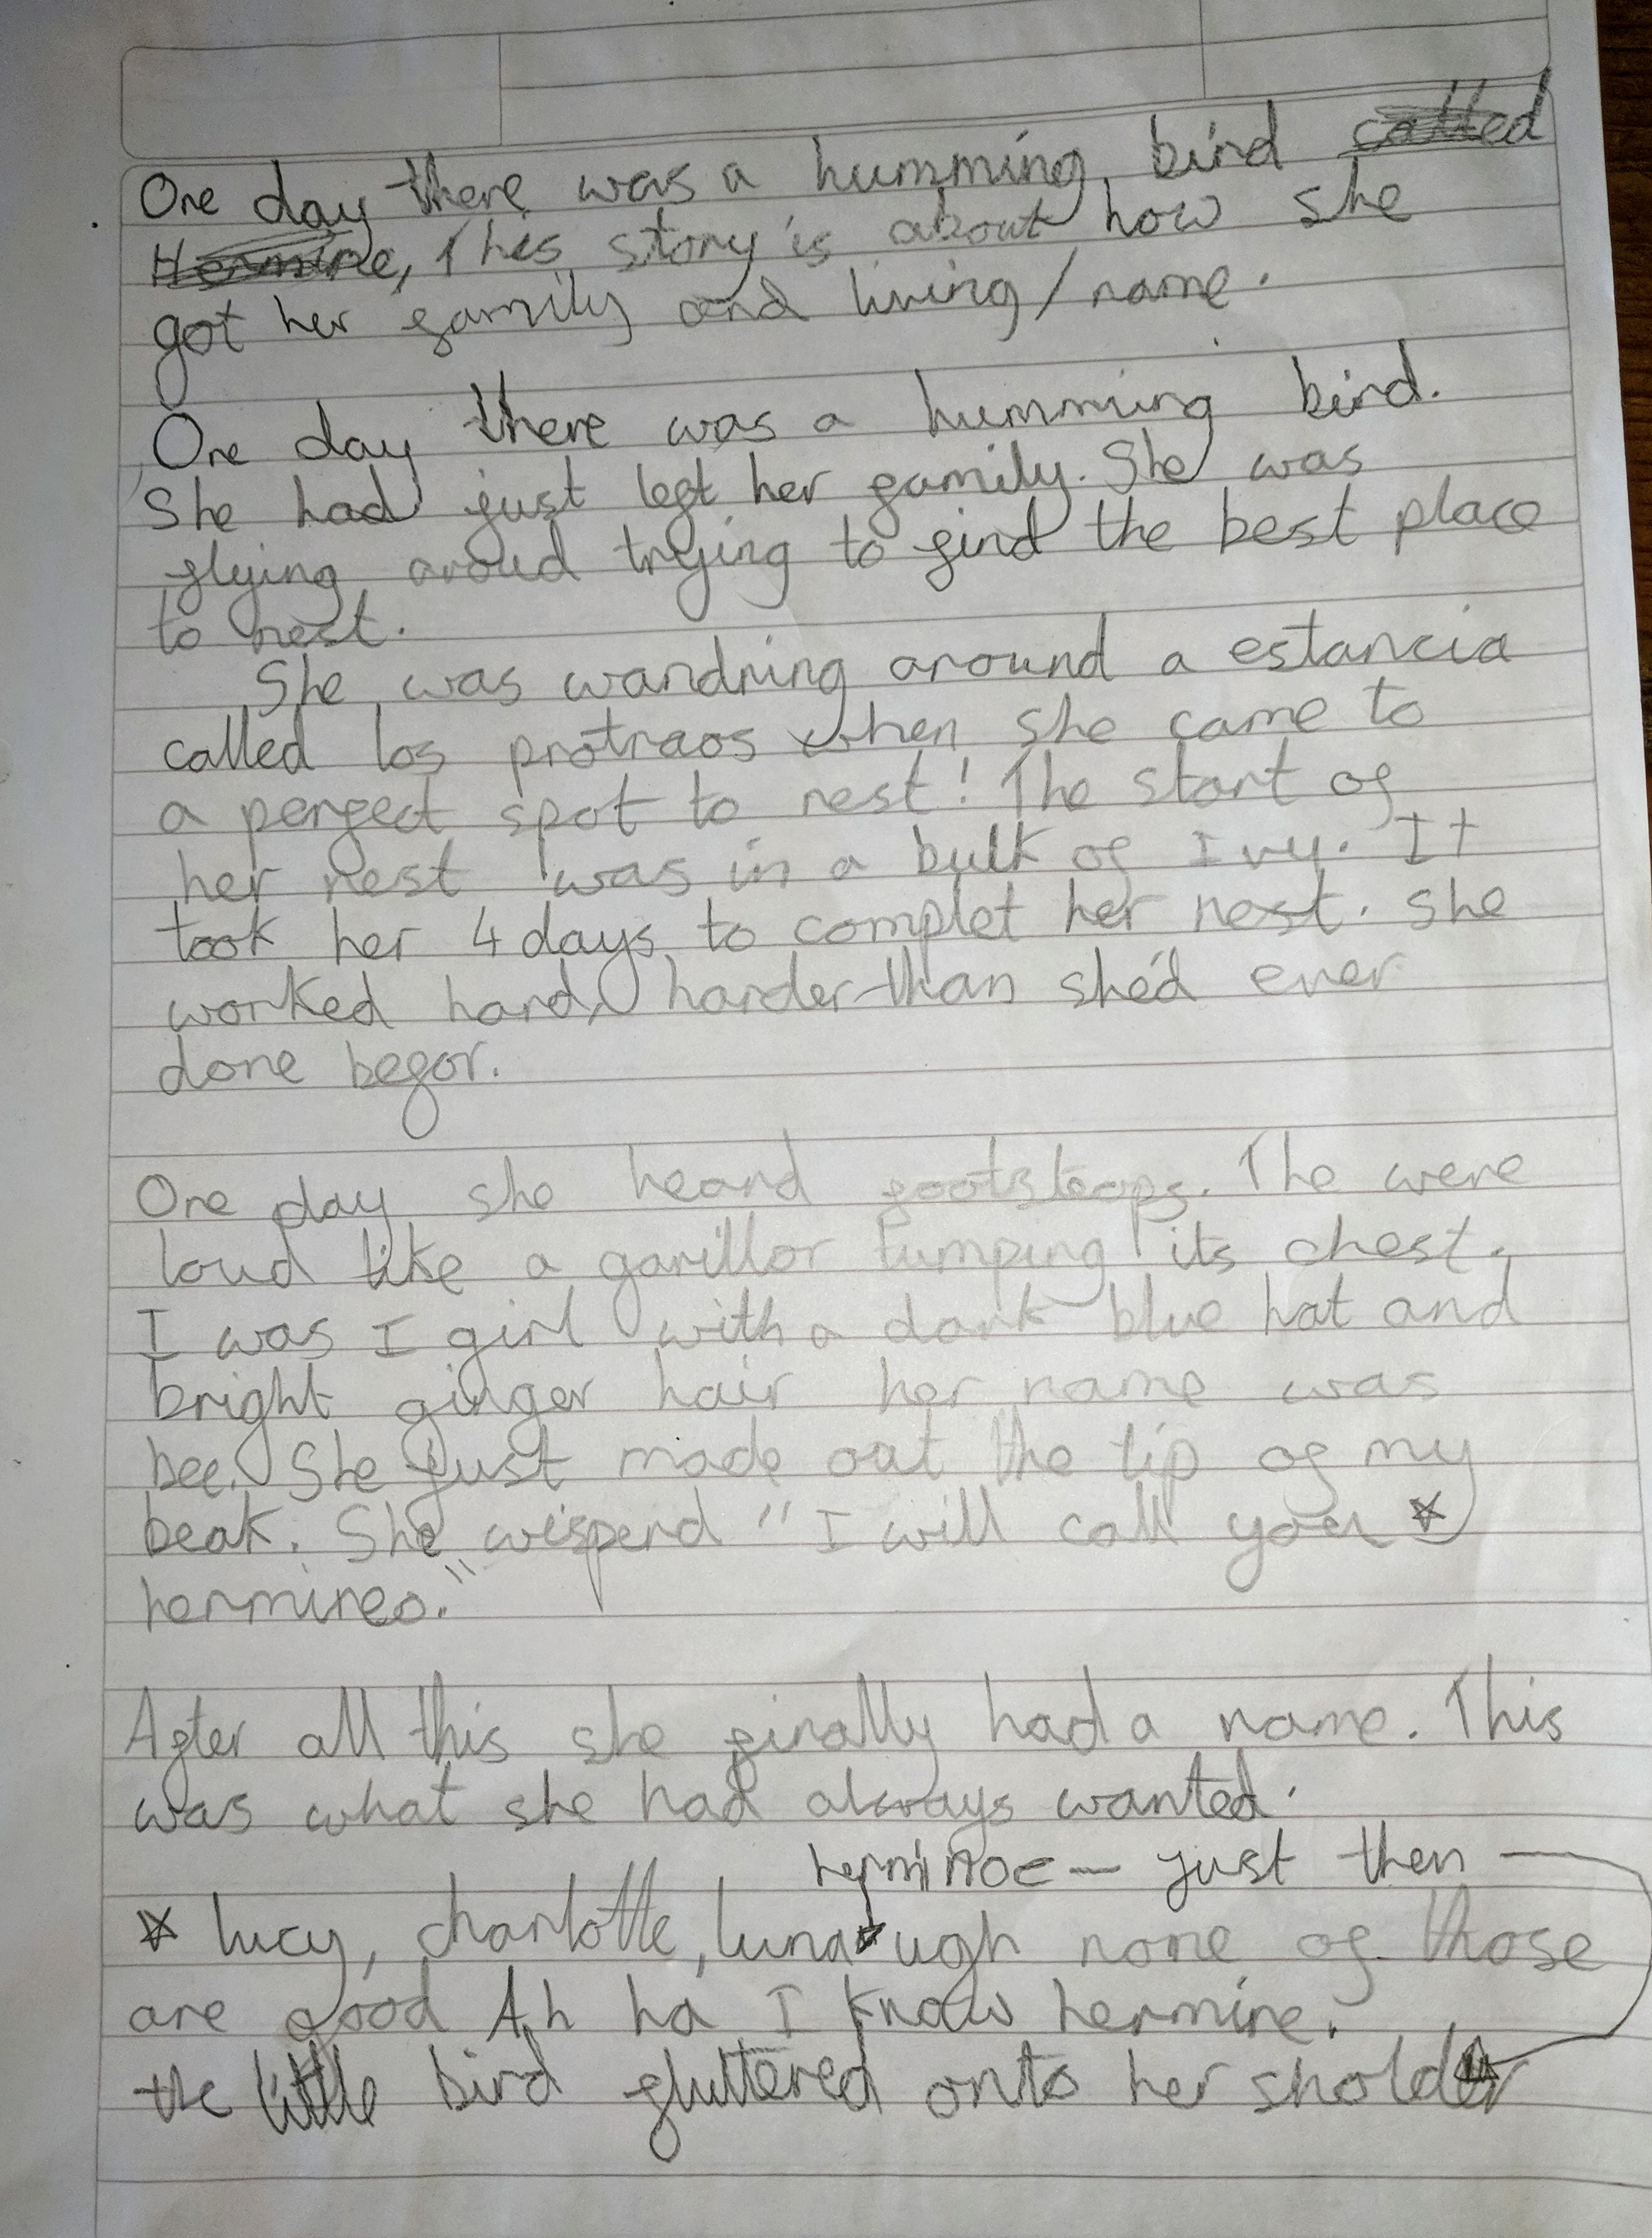 One day there was a humming bird called
Hermine, This story is about how she
got her family and living/name.
One day there was a humming bird.
She had just left her family. She was
flying aroud trying to find the best place
to nest.
She was wandring around a estancia
called los protraos when she came to
a perfect spot to nest! The start of
her nest was in a bulk of Ivy. It
took her 4 days to complet her nest. She
worked hard, harder than she'd ever
done befor.
One day she heard footsteops. The were
loud like a garillor tumping its chest.
I was I girl with a dark blue hat and
bright ginger hair her name was
bee. She just made out the tip of my
beak. She wisperd "I will call you ☆
hermineo."
After all this she finally had a name. This
was what she had always wanted.
herminoe — just then
☆ lucy, charlotte, luna ugh none of those
are good Ah ha I know hermine.
the little bird fluttered onto her sholder